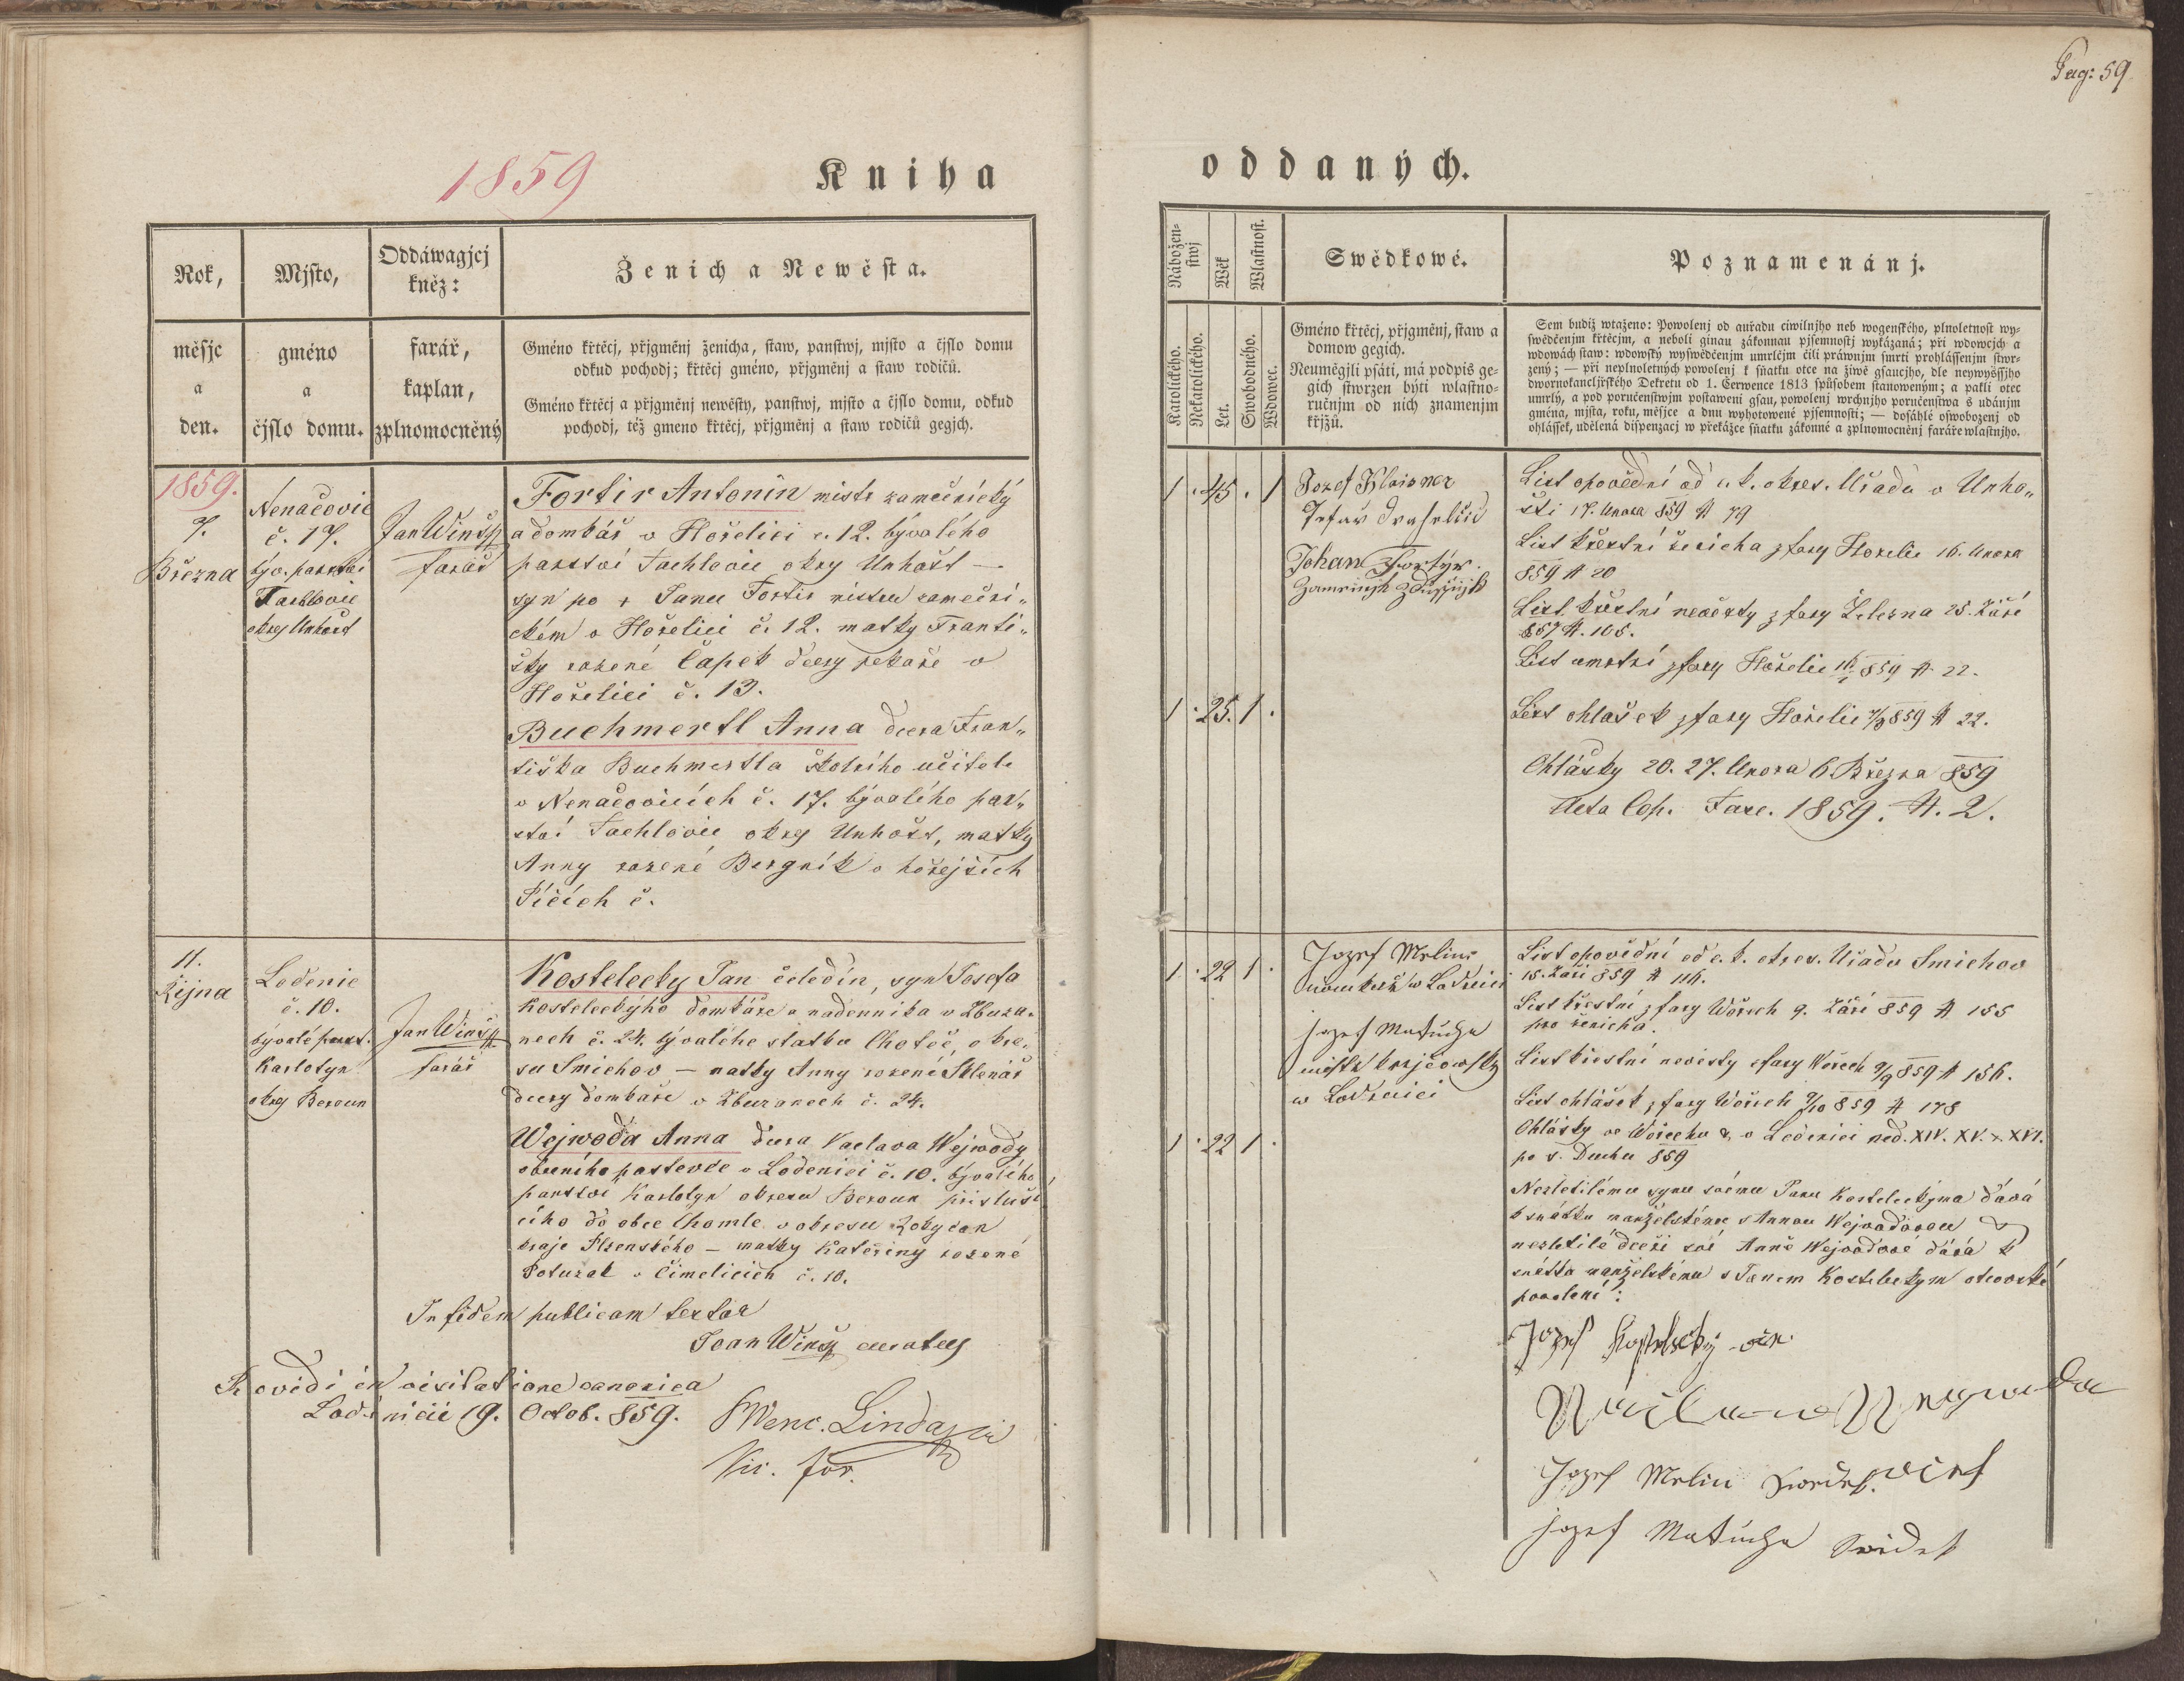 Pag: 59
1859
Kniha
oddaných.
Rok,
měsjc
a
den.
Mjsto,
gméno
a
čjslo domu.
Oddáwagjcj
kněz:
farář,
kaplan,
zplnomocněný
Ženich a Newěsta.
Gméno křtěcj, přjgměnj ženicha, staw, panstwj, mjsto a čjslo domu
odkud pochodj; křtěcj gméno, přjgměnj a staw rodičů.
Gméno křtěcj a přjgměnj newěsty, panstwj, mjsto a čjslo domu, odkud
pochodj, též gmeno křtěcj, přjgměnj a staw rodičů gegjch.
Nábožen-
stwj
Wěk
Wlastnost.
Katolického.
Nekatolického.
Let.
Swobodného.
Wdowec.
Swědkowé.
Gméno křtěcj, přjgměnj, staw a
domow gegich.
Neuměgjli psáti, má podpis ge-
gich stwrzen býti wlastno-
ručnjm od nich znamenjm
křjžů.
Poznamenánj.
Sem budiž wtaženo: Powolenj od auřadu ciwilnjho neb wogenského, plnoletnost wy-
swědčenjm křtěcjm, a neboli ginau zákonnau pjsemnostj wykázaná; při wdowcjch a
wdowách staw: wdowský wyswědčenjm umrlčjm čili práwnjm smrti prohlássenjm stwr-
zený; — při neplnoletných powolenj k sňatku otce na žiwě gsaucjho, dle neywyššjho
dwornokancljřského Dekretu od 1. Čerwence 1813 spůsobem stanoweným; a pakli otec
umrlý, a pod poručenstwjm postaweni gsau, powolenj wrchnjho poručenstwa s udánjm
gména, mjsta, roku, měsjce a dnu wyhotowené pjsemnosti; — dosáhlé oswobozenj od
ohlássek, udělená dispenzacj w překážce sňatku zákonné a zplnomocněnj faráře wlastnjho.
1859.
7.
Března
Nenačovic
č. 17.
býv. panství
Tachlovic
okres Unhošt
Jan Winš
farář
Fortir Antonín mistr zamečnický
a domkář v Hořelici č. 12. bývalého
panství Tachlovic okres Unhošt —
syn po + Janu Fortir mistru zameční„
ckém v Hořelici č. 12. matky Franti„
šky rozené Čapek dcery pekaře v
Hořelici č. 13.
Buchmertl Anna dcera Fran„
tiška Buchmertla školního učitele
v Nenačovicích č. 17. bývalého pan„
ství Tachlovic okres Unhošt, matky
Anny rozené Bergník v hořejších
č.
1 . 45 . 1
1 . 25. 1 .
Jozef
Johan Fortýr
List opovědní od c. k. okres. Úřadu v Unho„
šti 17. Února 859 # 79
List křestní ženicha z fary Hořelic 16. Února
859 # 20
List křestní nevěsty z fary Železna 25. Září
857 #. 105.
List umrtní z fary Hořelic 859 # 22.
List ohlášek z fary Hořelic 7/3 859 # 22.
Ohlášky 20. 27. Února 6. Března 859
Acta Cop. Fasc. 1859. #. 2.
11.
Října
Lodenic
č. 10.
bývalé panst.
Karlotyn
okres Beroun
Jan Winš
farář
Kostelecky Jan čeledín, syn Josefa
Kosteleckýho domkáře a nadenníka v Zbuza„
nech č. 24. bývalého statku Chotče, okre„
su Smichov — matky Anny rozené Sklenář
dcery domkáře v Zbuzanech č. 24.
Wejwoda Anna dcera Vaclava Wejwody
obecního pastevce v Lodenici č. 10. bývalého
panství Karlotyn okresu Beroun přísluší„
cího do obce Chomle v okresu Rokycan
kraje Plzenského — matky Kateřiny rozené
v Čimelicích č. 10.
1 . 22 1 .
1 . 22 1 .
Jozef Melin
w Lodenici
jozef Matúcha
mistr krejčowsky
w Lodenici
List opovědní od c. k. okres. Úřadu Smichov
15. Září 859 # 116.
List křestní z fary Wořech 9. Září 859 # 155
pro ženicha.
List křestní nevěsty z fary Wořech 9/9 859 # 156.
List ohlášek z fary Wořech 9/10 859 # 178
Ohlášky ve Wořechu & v Lodenici ned. XIV. XV. & XVI.
po s. Duchu 859
Nezletilému synu svému Janu Kosteleckýmu dává
k snátku manželskému s Annou Wejvodovou &
nezletilé dceři své Anně Wejvodové dává k
snátku manželskému s Janem Kosteleckym otcovské
povolení:
Jozef Kostelecký otec
Jozef Melin swedek
jozef Matúcha swidek
In fidem publicam testor
Joan Winš curatus
Revidi in visitatione canonica
Lodenicii 19. Octob. 859.
Wenc. Linda
Vic. for.